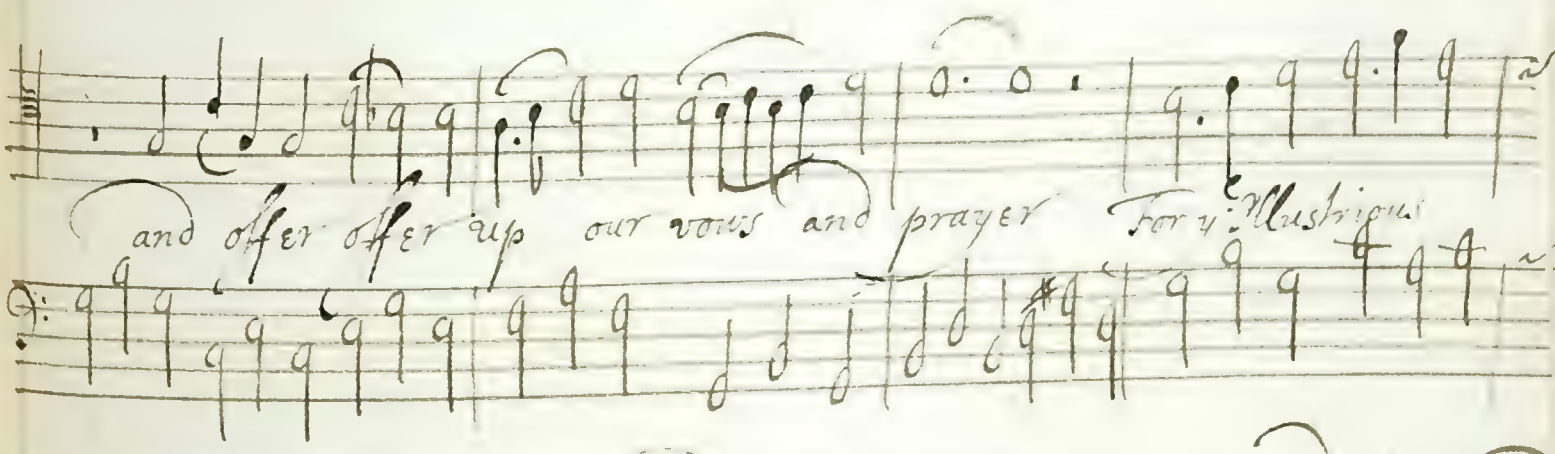 and offer offer up our vows and prayer For yͤ Illustrious